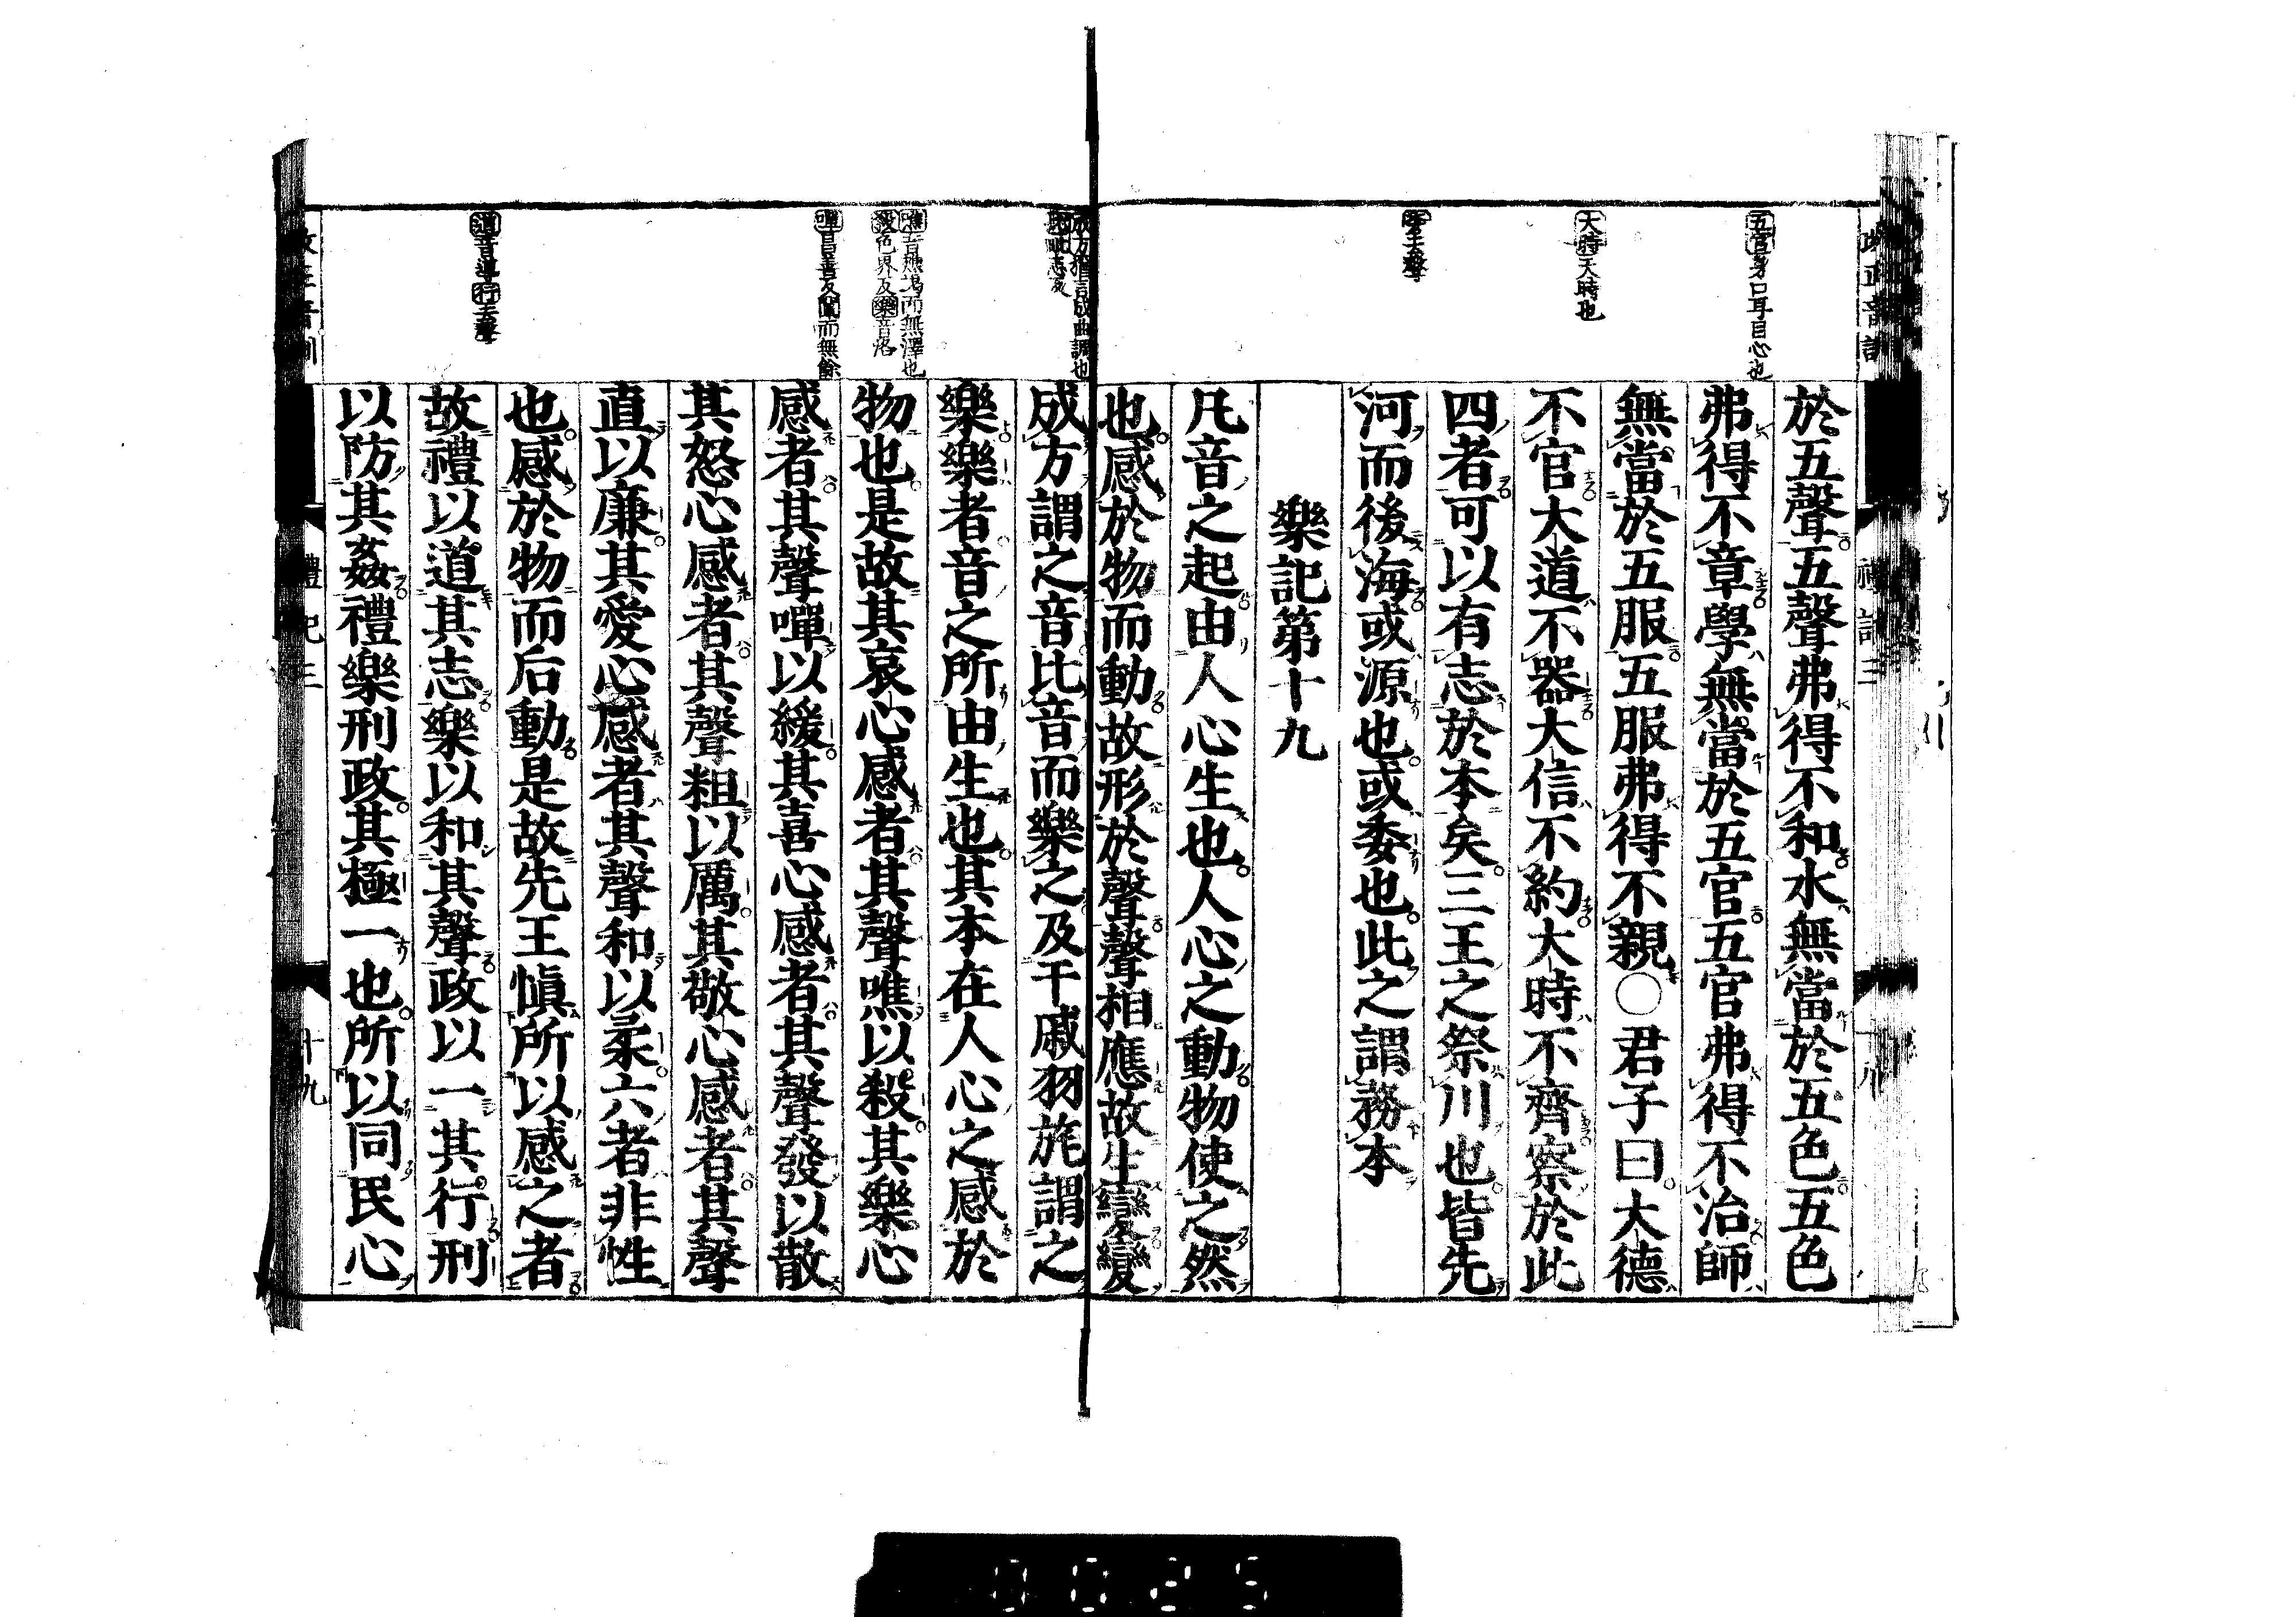 五官身口耳目心也
大時天時也
於五聲五聲弗得不和水無當於五色五色
弗得不章學無當於五官五官弗得不治師
無當於五服五服弗得不親○君子曰大德
不官大道不器大信不約大時不齊察於此
四者可以有志於本矣三王之祭川也皆先
河而後海或源也或委也此之謂務本
樂記第十九
凡音之起由人心生也人心之動物使之然
也感於物而動故形於聲聲相應故生變變
成方猶言成曲調也
噍音樵竭而無澤也
殺色界反樂音洛
嘽昌善反闡而無餘
道音導行去聲
成方謂之音比音而樂之及干戚羽旄謂之
樂樂者音之所由生也其本在人心之感於
物也是故其哀心感者其聲噍以殺其樂心
感者其聲嘽以緩其喜心感者其聲發以散
其怒心感者其聲粗以厲其敬心感者其聲
直以廉其愛心感者其聲和以柔六者非性
也感於物而后動是故先王慎所以感之者
故禮以道其志樂以和其聲政以一其行刑
以防其姦禮樂刑政其極一也所以同民心
禮記三
十九